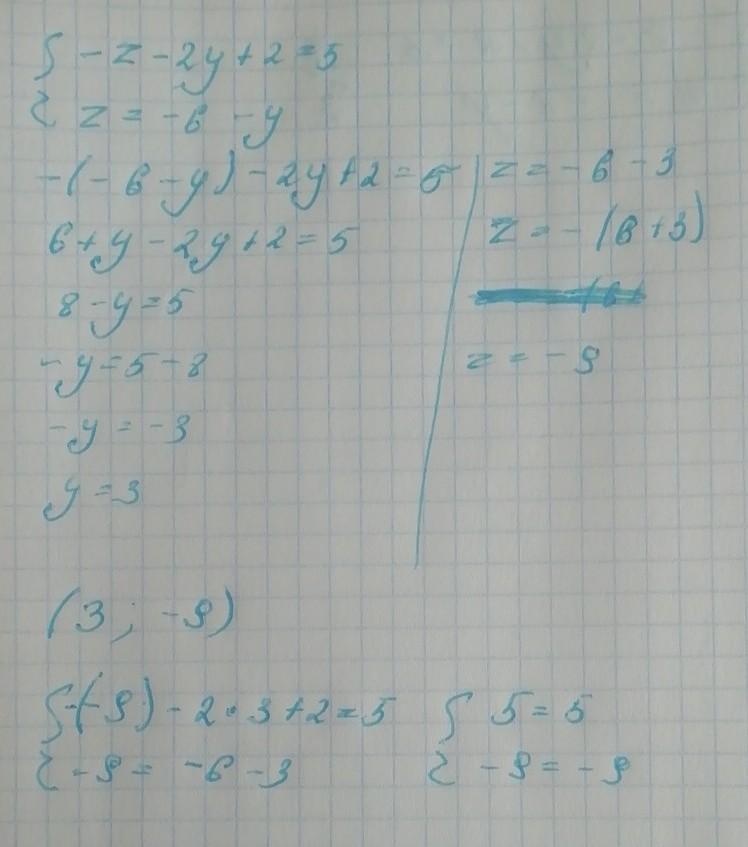 { -z - 2y + 2 = 5
{ z = -6 - y
-(-6-y) - 2y + 2 = 5
6 + y - 2y + 2 = 5
8 - y = 5
-y = 5 - 8
-y = -3
y = 3
z = -6 - 3
z = -(6+3)
z = -9
(3; -9)
{ -(-9) - 2·3 + 2 = 5
{ -9 = -6 - 3
{ 5 = 5
{ -9 = -9